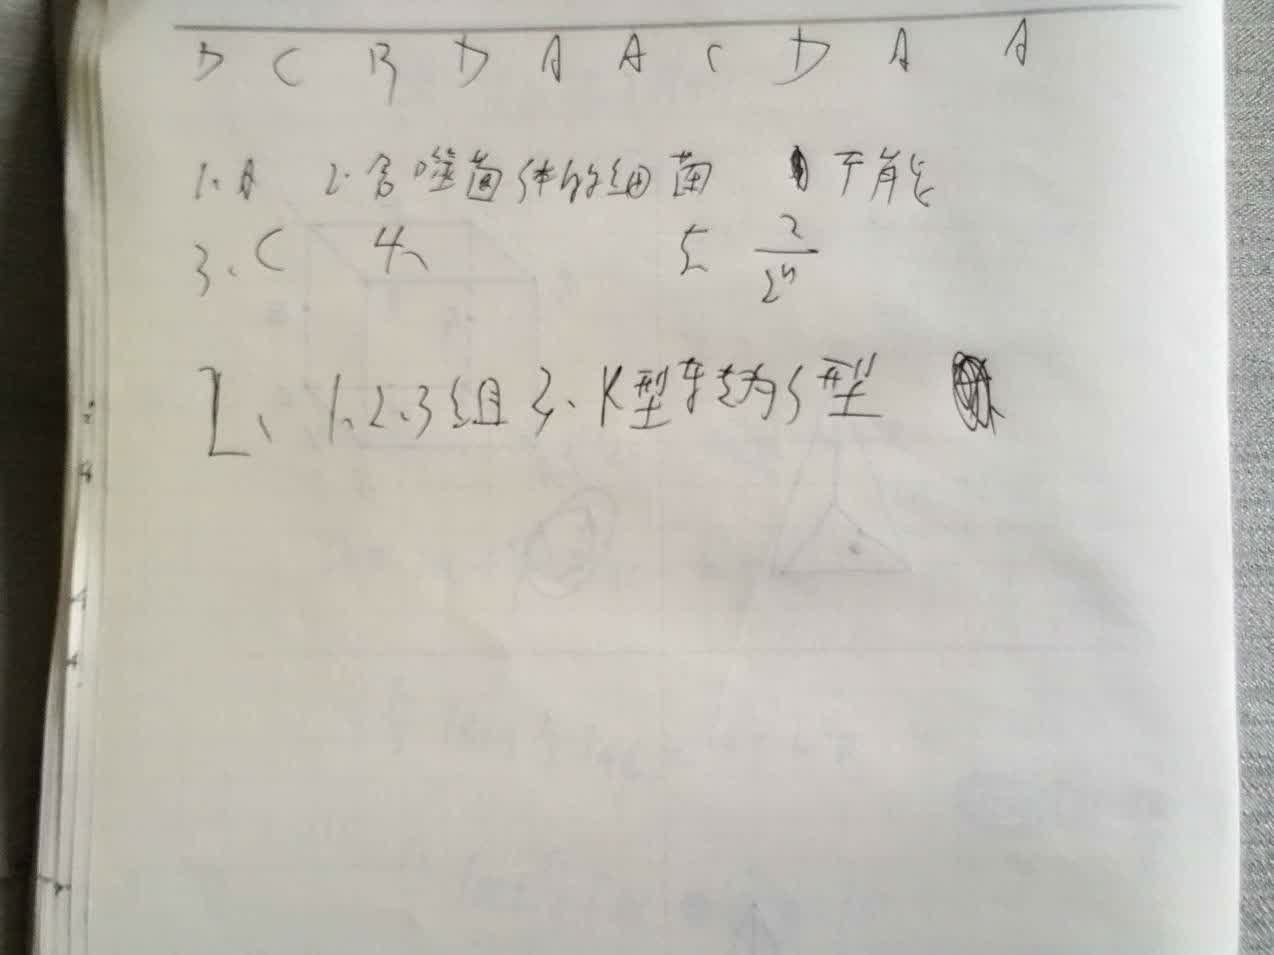 D C B D A A C D A A
1. A 2. 含噬菌体的细菌 不能
3. C 4、 5 2/2ⁿ
1、2、3组 3、R型转为S型